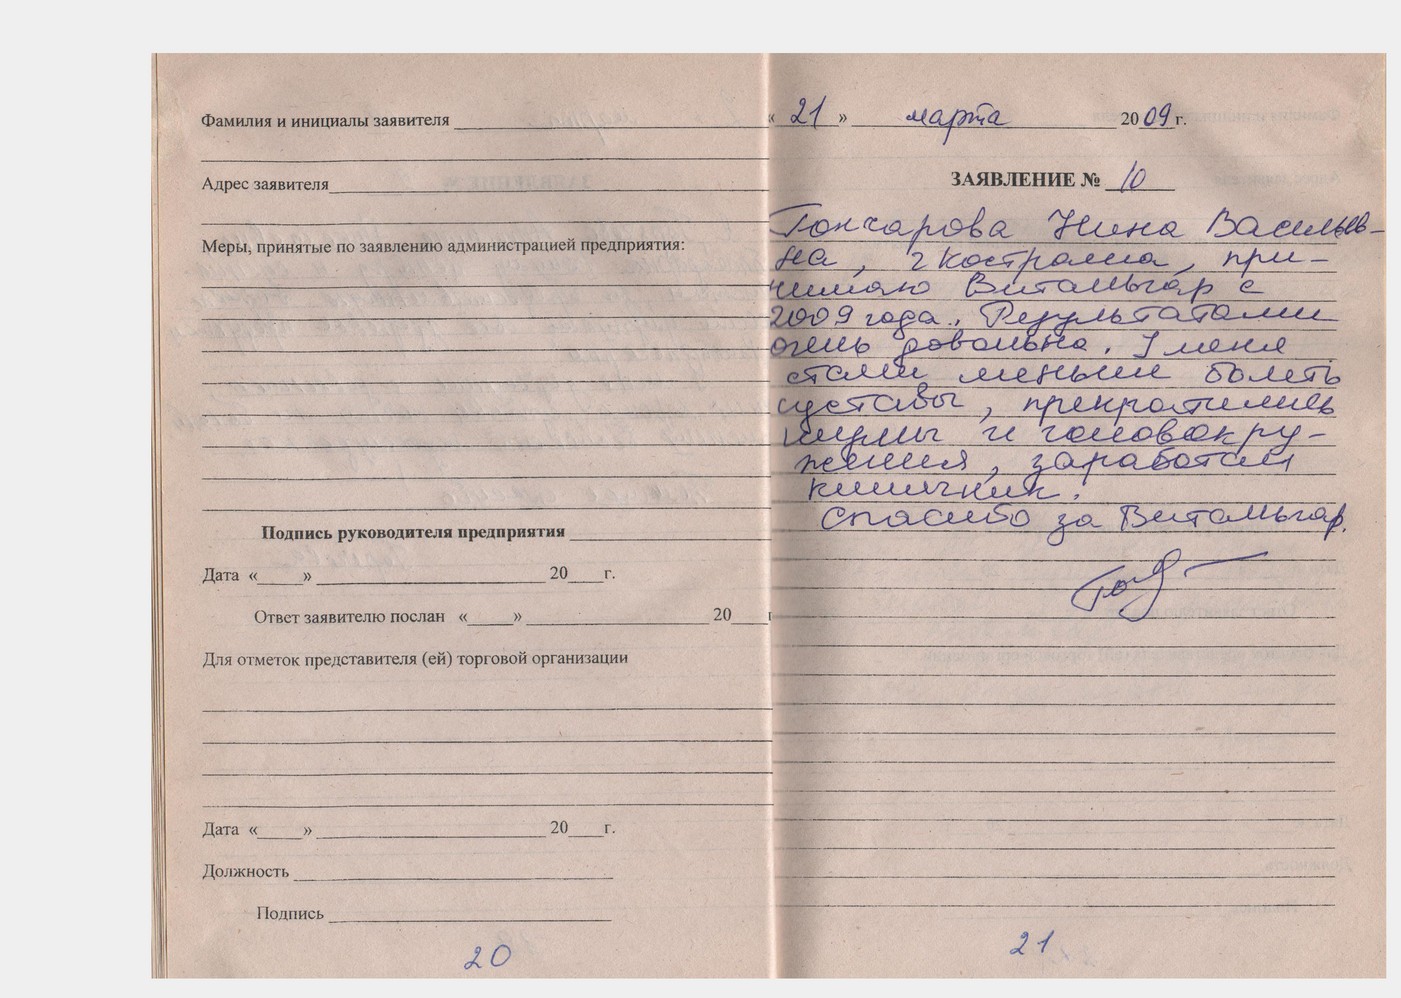 Фамилия и инициалы заявителя
Адрес заявителя
Меры, принятые по заявлению администрацией предприятия:
Подпись руководителя предприятия
Дата «_____» 20____г.
Ответ заявителю послан «_____» 20____г
Для отметок представителя (ей) торговой организации
Дата «_____» 20____г.
Должность
Подпись
20
« 21 » марта 2009г.
ЗАЯВЛЕНИЕ № 10
Гончарова Нина Васильев-
на, г Кострома, при-
нимаю Витальгар с
2009 года. Результатами
очень довольна. У меня
стали меньше болеть
суставы, прекратились
шумы и головокру-
жения, заработал
кишечник.
Спасибо за Витальгар.
21